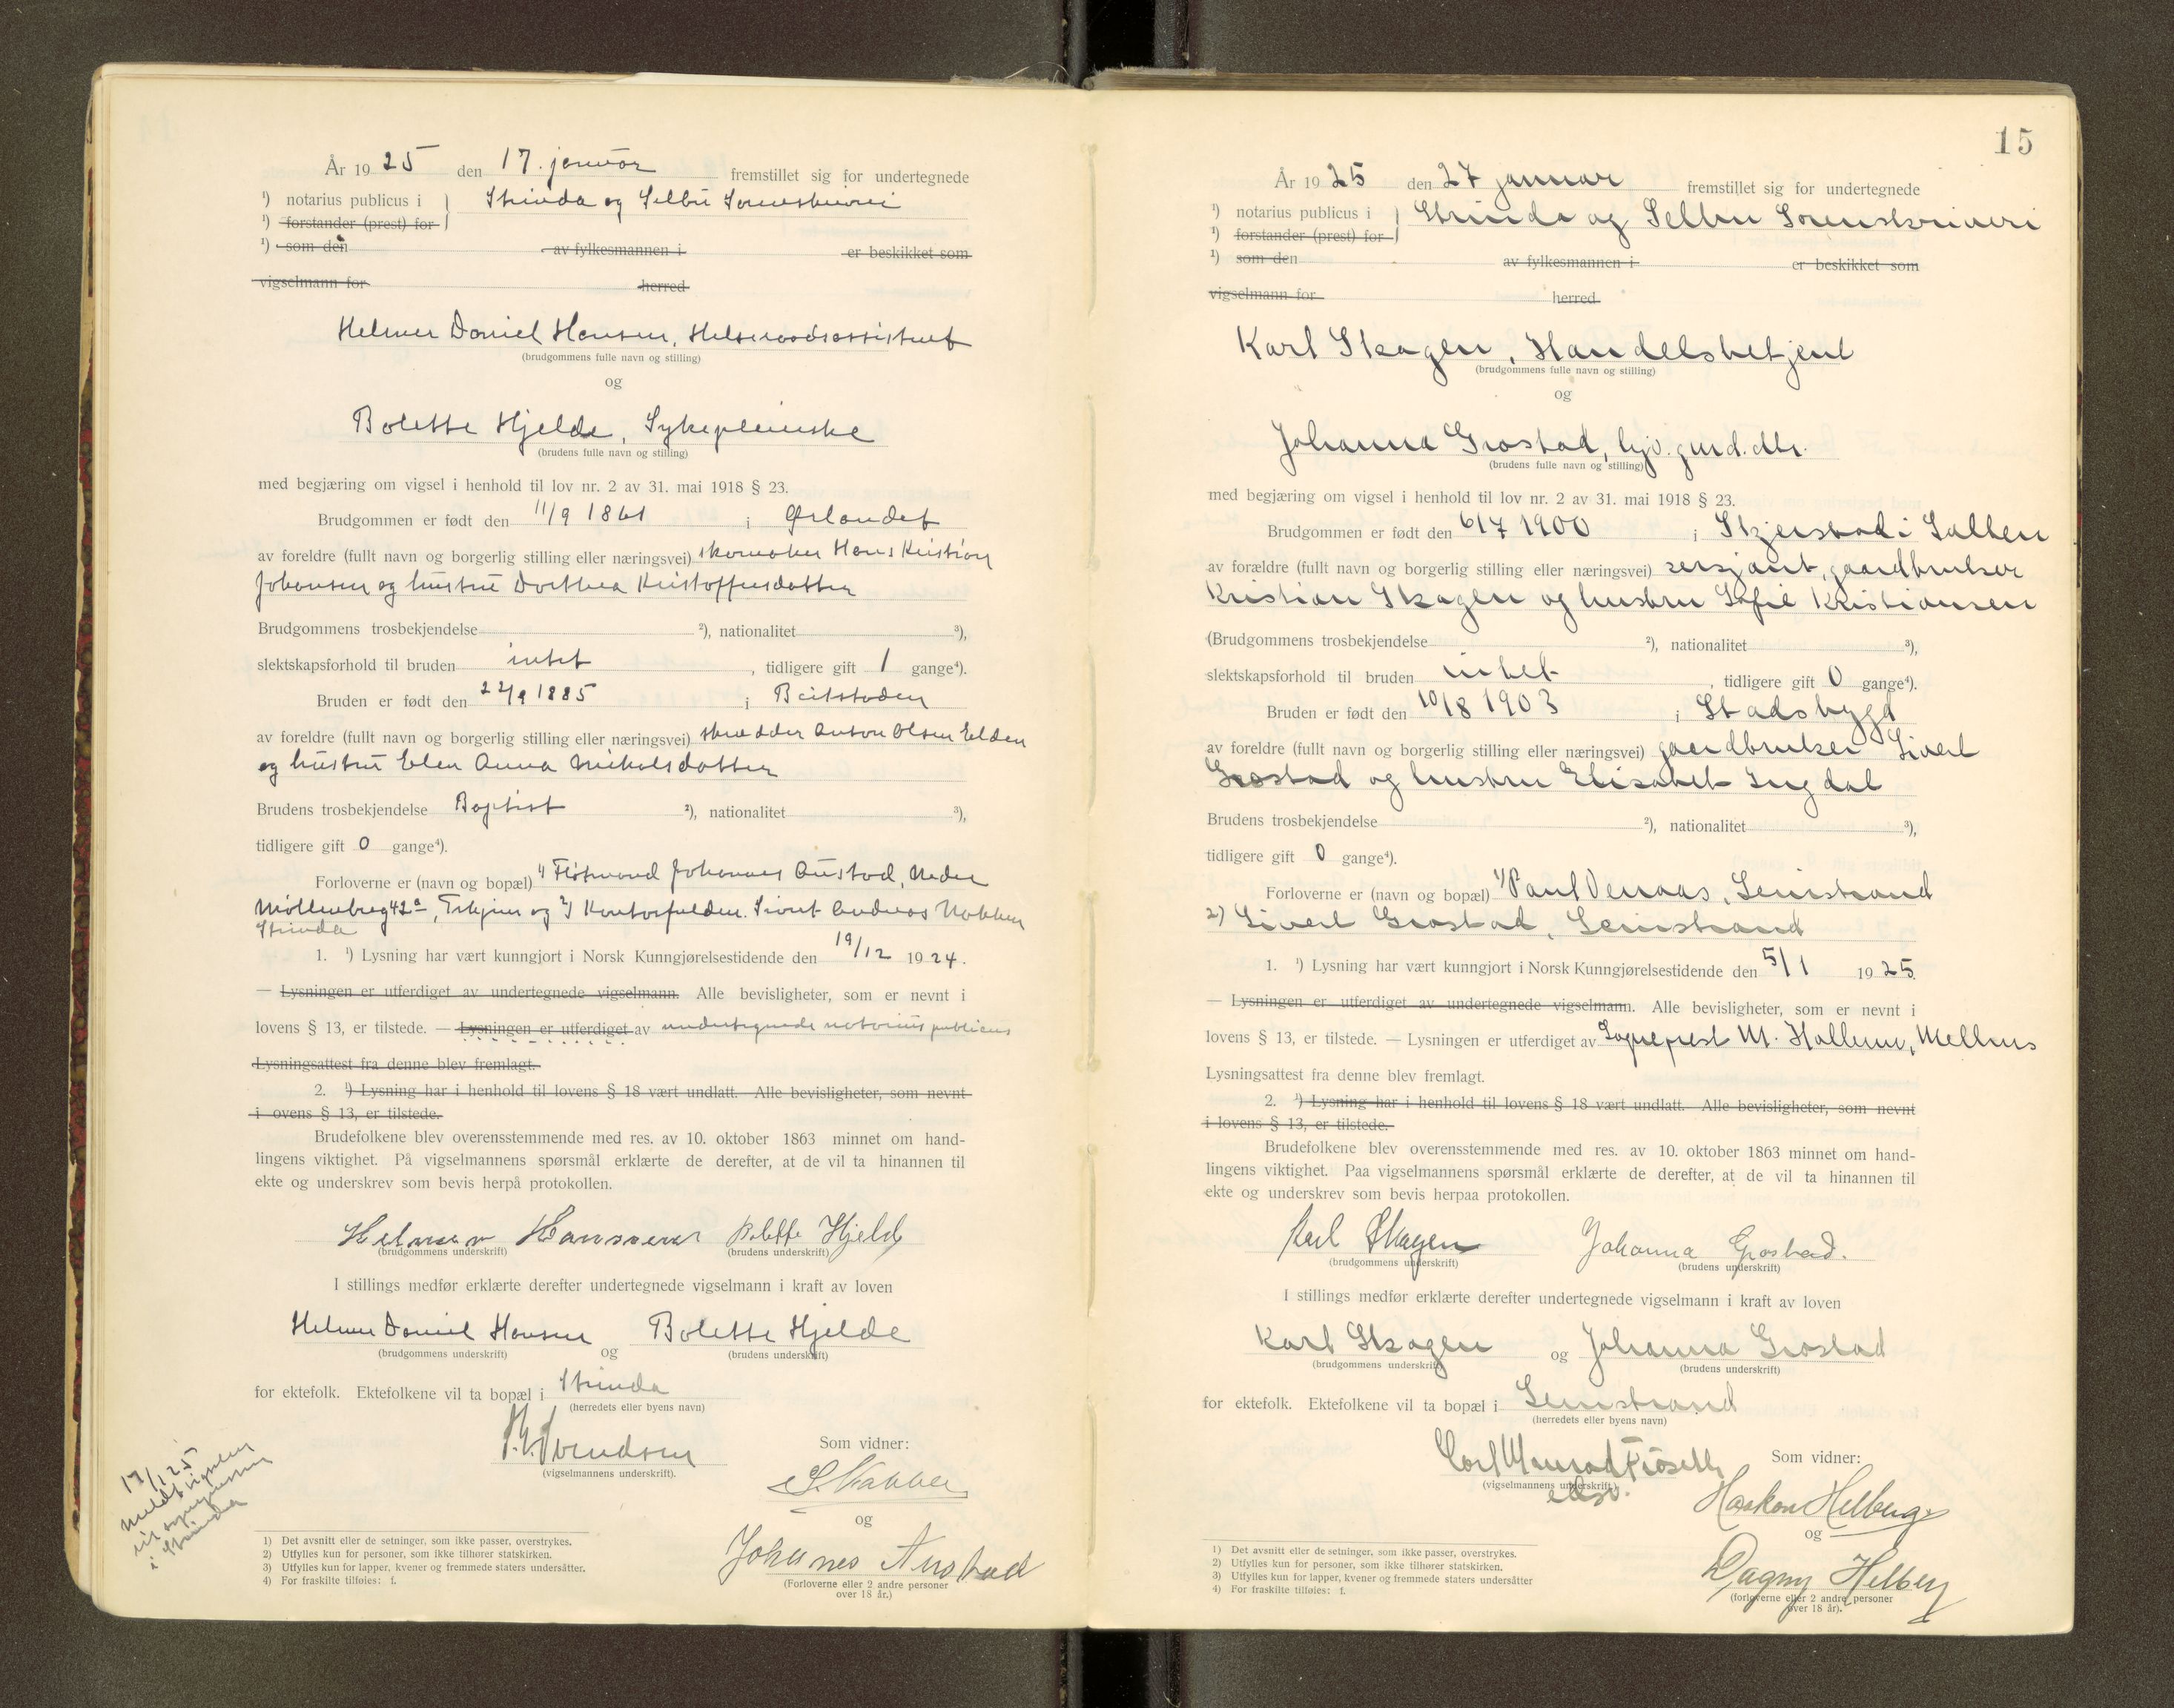 År 1925 den 17. januar fremstillet sig for undertegnede
¹) notarius publicus i } Strinda og Selbu Sorenskriveri
¹) forstander (prest) for
¹) som den av fylkesmannen i er beskikket som
vigselmann for herred
Helmer Daniel Hansen, Helseraadsassistent
(brudgommens fulle navn og stilling)
og
Bolette Hjelde, Sykepleierske
(brudens fulle navn og stilling)
med begjæring om vigsel i henhold til lov nr. 2 av 31. mai 1918 § 23.
Brudgommen er født den 11/9 1861 i Ørlandet
av foreldre (fullt navn og borgerlig stilling eller næringsvei) skomaker Hans Kristian
Johansen og hustru Dorthea Kristoffersdatter
Brudgommens trosbekjendelse ²), nationalitet ³),
slektskapsforhold til bruden intet, tidligere gift 1 gange⁴).
Bruden er født den 22/9 1885 i Beitstaden
av foreldre (fullt navn og borgerlig stilling eller næringsvei) skredder Anton Olsen Eelden
og hustru Elen Anna Mikalsdatter
Brudens trosbekjendelse Baptist ²), nationalitet ³),
tidligere gift 0 gange⁴).
Forloverne er (navn og bopæl) 1) Johannes Austad, Nedre
Møllenberg 42a, Trhjem og 2) Sivert Andreas Nakken
Strinda
1. ¹) Lysning har vært kunngjort i Norsk Kunngjørelsestidende den 19/12 1924.
— Lysningen er utferdiget av undertegnede vigselmann. Alle bevisligheter, som er nevnt i
lovens § 13, er tilstede. — Lysningen er utferdiget av undertegnede notarius publicus
Lysningsattest fra denne blev fremlagt.
2. ¹) Lysning har i henhold til lovens § 18 vært undlatt. Alle bevisligheter, som nevnt
i ovens § 13, er tilstede.
Brudefolkene blev overensstemmende med res. av 10. oktober 1863 minnet om hand-
lingens viktighet. På vigselmannens spørsmål erklærte de derefter, at de vil ta hinannen til
ekte og underskrev som bevis herpå protokollen.
Helmer Hansen Bolette Hjelde
(brudgommens underskrift) (brudens underskrift)
I stillings medfør erklærte derefter undertegnede vigselmann i kraft av loven
Helmer Daniel Hansen og Bolette Hjelde
(brudgommens underskrift) (brudens underskrift)
for ektefolk. Ektefolkene vil ta bopæl i Strinda
(herredets eller byens navn)
Svendsen
(vigselmannens underskrift).
Som vidner:
og
Johannes Austad
(Forloverne eller 2 andre personer
over 18 år.)
17/1 25
meldt vigselen
til sognepresten
i Strinda
1) Det avsnitt eller de setninger, som ikke passer, overstrykes.
2) Utfylles kun for personer, som ikke tilhører statskirken.
3) Utfylles kun for lapper, kvener og fremmede staters undersåtter.
4) For fraskilte tilføies: f.
15
År 1925 den 27 januar fremstillet sig for undertegnede
¹) notarius publicus i } Strinda og Selbu Sorenskriveri
¹) forstander (prest) for
¹) som den av fylkesmannen i er beskikket som
vigselmann for herred
Karl Skagen, Handelsbetjent
(brudgommens fulle navn og stilling)
og
Johanna Grøstad, hjv. gurd. dtr.
(brudens fulle navn og stilling)
med begjæring om vigsel i henhold til lov nr. 2 av 31. mai 1918 § 23.
Brudgommen er født den 6/7 1900 i Skjerstad i Salten
av forældre (fullt navn og borgerlig stilling eller næringsvei) sersjant, gaardbruker
Kristian Skagen og hustru Sofie Kristiansen
(Brudgommens trosbekjendelse ²), nationalitet ³),
slektskapsforhold til bruden intet, tidligere gift 0 gange⁴).
Bruden er født den 10/8 1903 i Stadsbygd
av foreldre (fullt navn og borgerlig stilling eller næringsvei) gaardbruker Sivert
Grøstad og hustru Elisabet Ingdal
Brudens trosbekjendelse ²), nationalitet ³),
tidligere gift 0 gange⁴).
Forloverne er (navn og bopæl) 1) Paul Venaas, Leinstrand
2) Sivert Grøstad, Leinstrand
1. ¹) Lysning har vært kunngjort i Norsk Kunngjørelsestidende den 5/1 1925.
— Lysningen er utferdiget av undertegnede vigselmann. Alle bevisligheter, som er nevnt i
lovens § 13, er tilstede. — Lysningen er utferdiget av Sogneprest M. Hallem, Melhus
Lysningsattest fra denne blev fremlagt.
2. ¹) Lysning har i henhold til lovens § 18 vært undlatt. Alle bevisligheter, som nevnt
i lovens § 13, er tilstede.
Brudefolkene blev overensstemmende med res. av 10. oktober 1863 minnet om hand-
lingens viktighet. Paa vigselmannens spørsmål erklærte de derefter, at de vil ta hinannen til
ekte og underskrev som bevis herpaa protokollen.
Karl Skagen Johanna Grøstad.
(brudgommens underskrift) (brudens underskrift)
I stillings medfør erklærte derefter undertegnede vigselmann i kraft av loven
Karl Skagen og Johanna Grøstad
(brudgommens underskrift) (brudens underskrift)
for ektefolk. Ektefolkene vil ta bopæl i Leinstrand
(herredets eller byens navn)
Carl
(vigselmannens underskrift)
Som vidner:
Haakon Helberg
og
Dagny Helberg
(forloverne eller 2 andre personer
over 18 år).
1) Det avsnitt eller de setninger, som ikke passer, overstrykes.
2) Utfylles kun for personer, som ikke tilhører statskirken.
3) Utfylles kun for lapper, kvener og fremmede staters undersåtter
4) For fraskilte tilføies: f.